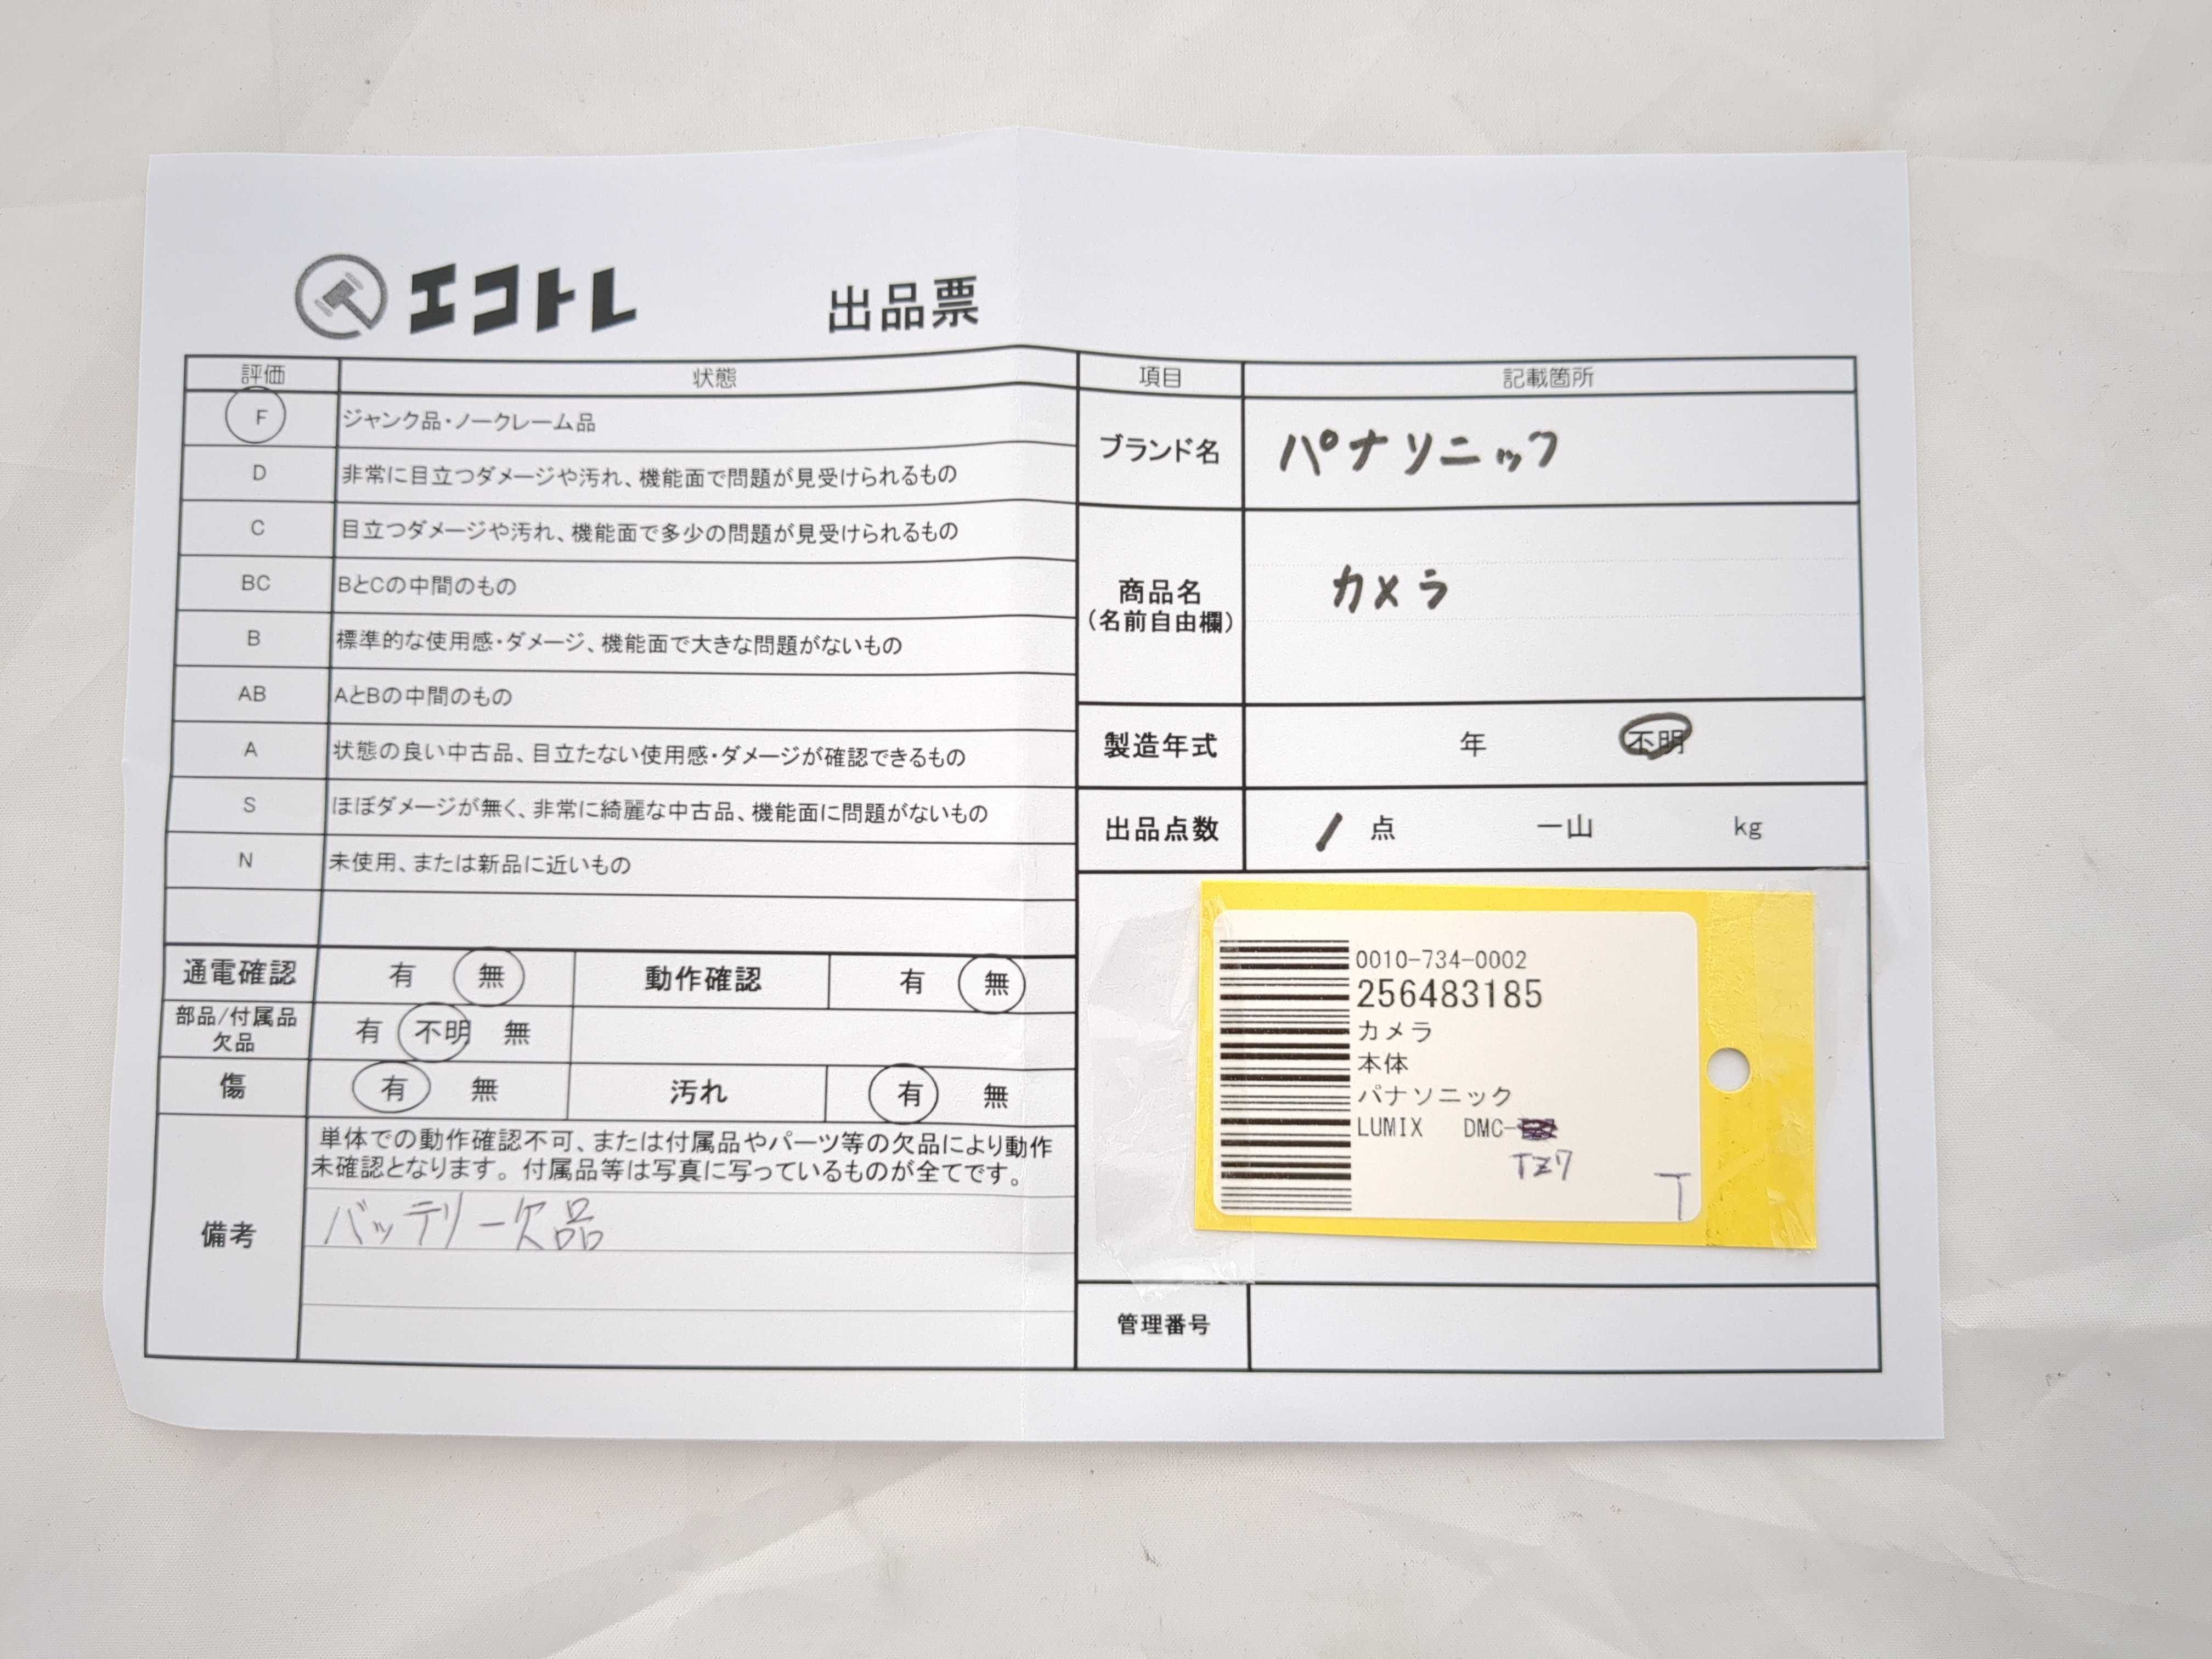 エコトレ 出品票
評価 状態
F ジャンク品・ノークレーム品
D 非常に目立つダメージや汚れ、機能面で問題が見受けられるもの
C 目立つダメージや汚れ、機能面で多少の問題が見受けられるもの
BC BとCの中間のもの
B 標準的な使用感・ダメージ、機能面で大きな問題がないもの
AB AとBの中間のもの
A 状態の良い中古品、目立たない使用感・ダメージが確認できるもの
S ほぼダメージが無く、非常に綺麗な中古品、機能面に問題がないもの
N 未使用、または新品に近いもの
通電確認 有 無 動作確認 有 無
部品/付属品
欠品 有 不明 無
傷 有 無 汚れ 有 無
備考
単体での動作確認不可、または付属品やパーツ等の欠品により動作
未確認となります。付属品等は写真に写っているものが全てです。
バッテリー欠品
項目 記載箇所
ブランド名 パナソニック
商品名
(名前自由欄) カメラ
製造年式 年 不明
出品点数 1 点 一山 kg
0010-734-0002
256483185
カメラ
本体
パナソニック
LUMIX DMC-
TZ7
T
管理番号